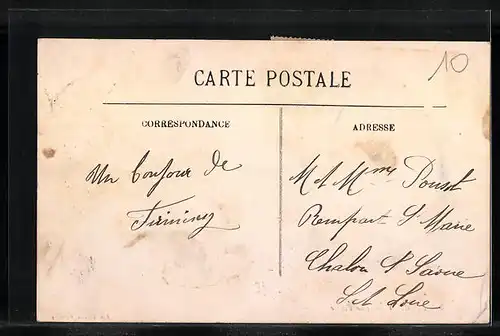 10
CARTE POSTALE
CORRESPONDANCE
ADRESSE
Un bonjour de
Firminy
M et Mme Pousst
Rempart St Marie
Chalon S Saone
S et Loire